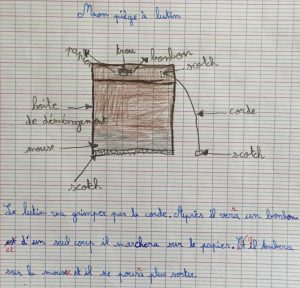 Mon piège à lutin
papier
trou
bonbon
scotch
boîte
de déménagement
corde
mouse
scotch
scotch
Le lutin va grimper par la corde. Après il vera un bonbon
est d'un seul coup il marchera sur le papier. Et il tombera
et
sur la mouse et il ne poura plus sortir.